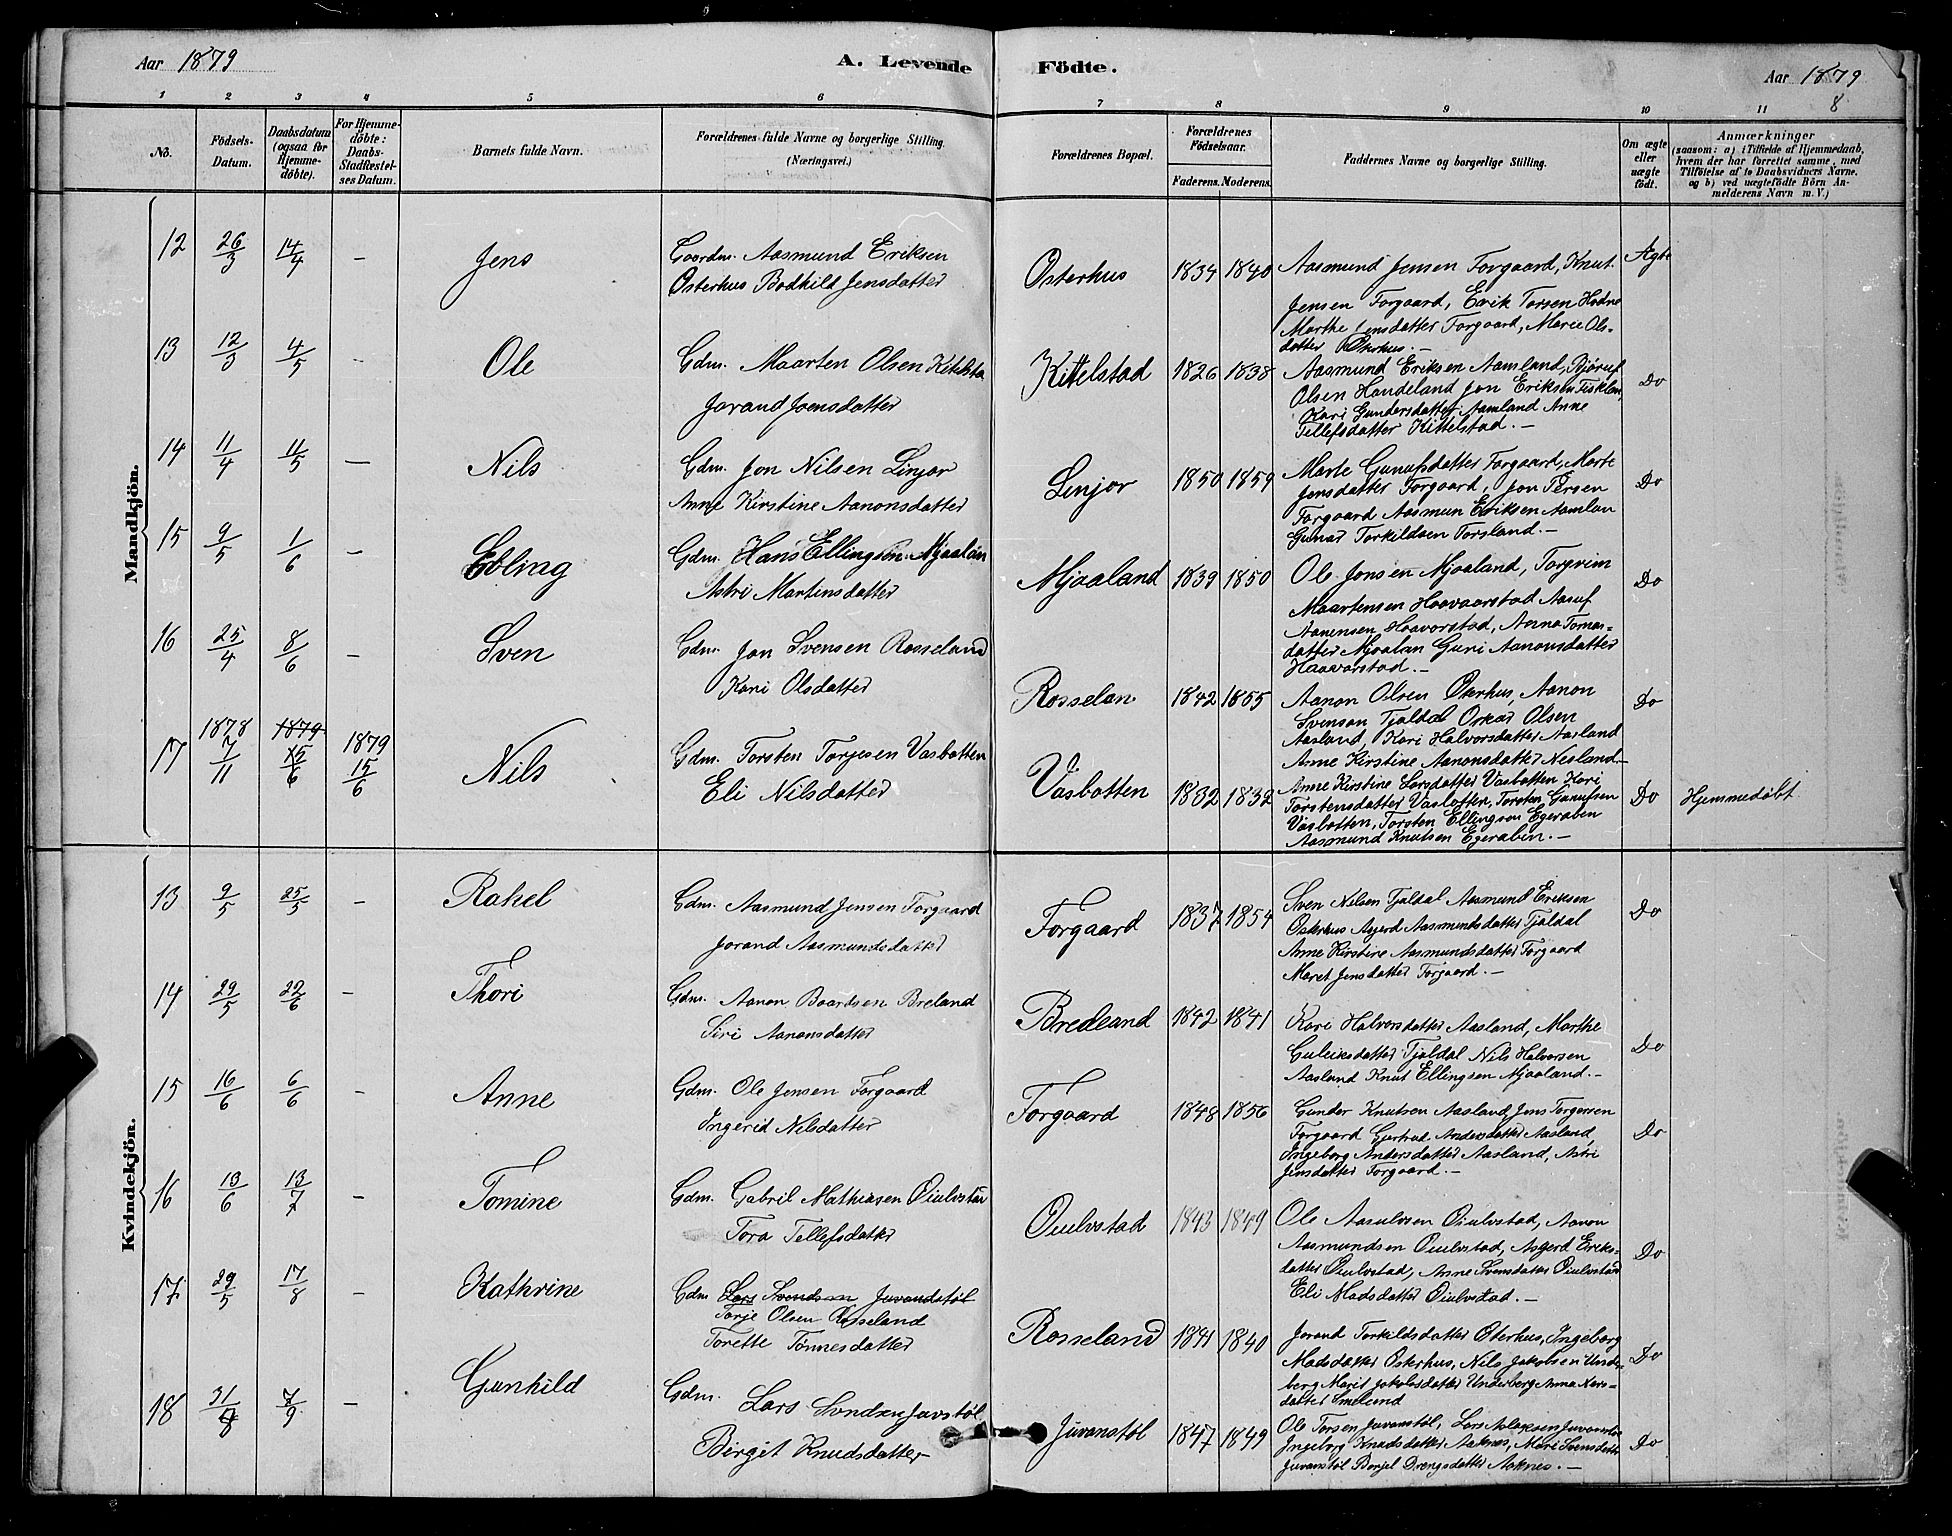 Aar 1879
A. Levende Födte.
Aar 1879
8
1 2 3 4 5 6 7 8 9 10 11
No.
Födsels-Datum.
Daabsdatum (ogsaa for Hjemmedöbte).
For Hjemmedöbte: Daabs-Stadfæstelses Datum.
Barnets fulde Navn.
Forældrenes fulde Navne og borgerlige Stilling. (Næringsvei.)
Forældrenes Bopæl.
Forældrenes Födselsaar.
Faderens. Moderens.
Faddernes Navne og borgerlige Stilling.
Om ægte eller uægte födt.
Anmærkninger
(saasom: a) i Tilfælde af Hjemmedaab,
hvem der har forrettet samme, med
Tilföielse af to Daabsvidners Navne.
og b) ved uægtefödte Börn An-
melderens Navn m. V.)
Mandkjön.
12 26/3 14/4 - Jens
Gaardm. Aasmund Eriksen
Osterhus Bodhild Jensdatter
Osterhus 1834 1840
Aasmund Jensen Forgaard, Knut
Jensen Forgaard, Erik Torsen Hodne
Marthe Jensdatter Forgaard, Marie Ols-
datter Osterhus. -
Ægte
13 12/3 4/5 - Ole
Gdm. Maarten Olsen Kittelsta
Jorand Joensdatter
Kittelstad 1826 1838
Aasmund Eriksen Aamland, Bjoruf
Olsen Haudeland Jon Eriksen Fisklan,
Kari Gundersdatter Aamland Anne
Tellefsdatter Kittelstad. -
Do
14 11/4 11/5 - Nils
Gdm. Jon Nilsen Linjor
Anne Kirstine Aanonsdatter
Linjor 1850 1859
Marte Gunufsdatter Forgaard, Marte
Jensdatter Forgaard, Jon Persen
Forgaard Aasmun Eriksen Aamlan
Gunar Torkildsen Torsland. -
Do
15 9/5 1/6 - Ebling
Gdm. Hans Ellingsen Mjaalan
Astri Martinsdatter
Mjaaland 1839 1850
Ole Jonsen Mjaaland, Torgrim
Maartensen Haavaarstad Aasuf
Aanensen Haavorstad, Anna Tomas-
datter Mjaalan Guri Aanonsdatter
Haavorstad. -
Do
16 25/4 8/6 - Sven
Gdm. Jon Svensen Rosseland
Kari Olsdatter
Rosselan 1842 1855
Aanon Olsen Osterhus, Aanon
Svenson Tjaldal Oskar Olsen
Aasland, Kari Halvorsdatter Aasland
Anne Kirstine Aanonsdatter Nesland -
Do
17 1878 7/11 1879 15/6 1879 15/6 Nils
Gdm. Torsten Torjusen Vasbotten
Eli Nilsdatter
Vasbotten 1832 1832
Anne Kirstine Larsdatter Vasbotten Kari
Torstensdatter Vasbotten, Torsten Gunufsen
Vasbotten, Torsten Ellingsen Egeraben
Aasmund Knutsen Egeraben. -
Do Hjemmedøbt
Kvindekjön.
13 9/5 25/5 - Rakel
Gdm. Aasmund Jensen Forgaard
Jorand Aasmundsdatter
Forgaard 1837 1854
Sven Nilsen Tjaldal Aasmund Eriksen
Osterhus Asgerd Aasmundsdatter Tjaldal
Anne Kirstine Aasmundsdatter Forgaard
Maret Jensdatter Forgaard. -
Do
14 29/5 22/6 - Thori
Gdm. Aanon Baardsen Breland
Siri Aanonsdatter
Bredeand 1842 1841
Kari Halvorsdatter Aasland, Marthe
Guleiksdatter Tjaldal Nils Halvorsen
Aasland Knut Ellingsen Mjaaland. -
Do
15 16/6 6/6 - Anne
Gdm. Ole Jensen Forgaard
Ingerid Nilsdatter
Forgaard 1848 1856
Gunder Knutsen Aasland, Jens Torgersen
Forgaard Gertrud Andersdatter Aasland,
Ingeborg Andersdatter Aasland, Astri
Jensdatter Forgaard. -
Do
16 13/6 13/7 - Tomine
Gdm. Gabril Mathiasen Oiulvstan
Tora Tellefsdatter
Oiulvstad 1843 1849
Ole Aasulvsen Oiulvstad, Aanon
Aasmundsen Oiulvstad, Asgerd Eriks-
datter Oiulvstad, Anne Svensdatter Oiulvstan
Eli Madsdatter Oiulvstad. -
Do
17 29/5 17/8 - Kathrine
Gdm Lars Svendsen Juvandstøl
Torje Olsen Rosseland
Torette Tonnesdatter
Rosseland 1841 1840
Jorand Torkildsdatter Osterhus, Ingeborg
Madsdatter Osterhus, Nils Jakobsen Under-
berg Marit Jakobsdatter Underberg Anna Lars-
datter Smeland
Do
18 31/8 7/9 - Gunhild
Gdm. Lars Svendsen Juvstøl
Birgit Knudsdatter
Juvanstøl 1847 1849
Ole Torsen Juvanstøl, Lars Aslaksen Juvanstøl
Ingeborg Knudsdatter Aaknes, Mari Svensdatter
Juvanstøl Borjel Drengsdatter Aaknes. -
Do